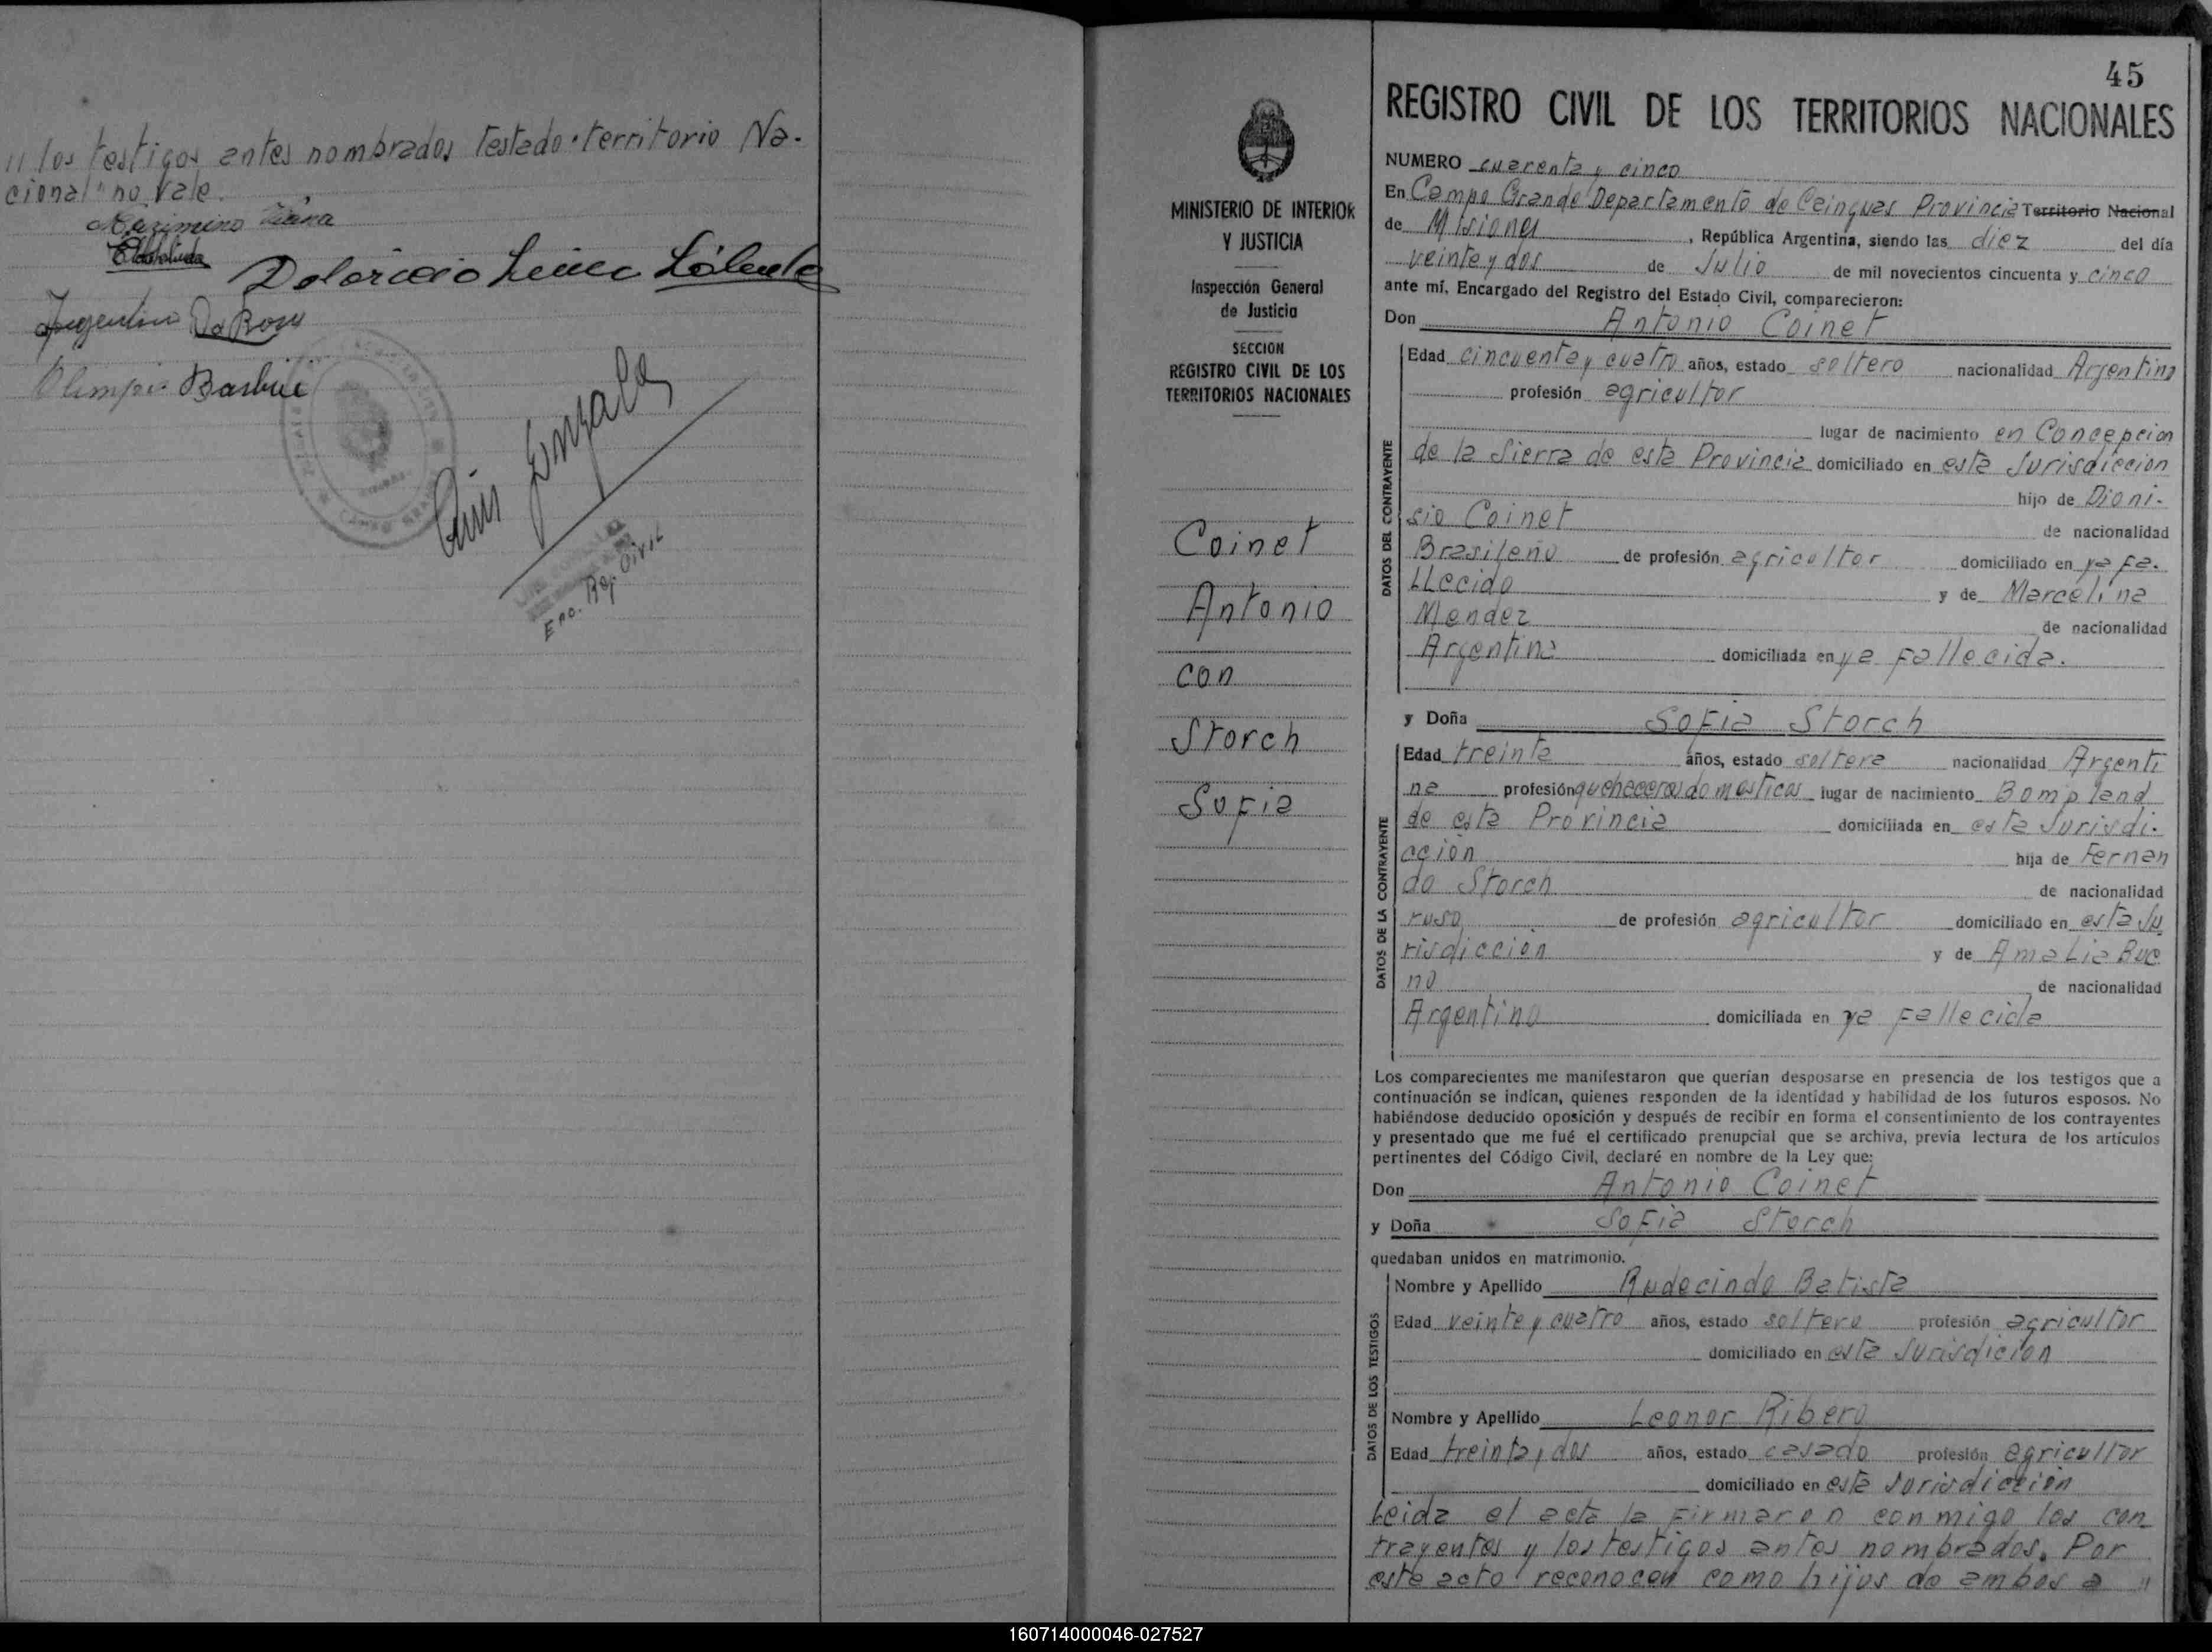 " los testigos antes nombrados testado "territorio Na-
cional" no vale.
Maximino Viana
Argentino Da Rosa
Olimpio Barbui
Luis Gonzalez
Enc. Reg. Civil
45
MINISTERIO DE INTERIOR
Y JUSTICIA
Inspección General
de Justicia
SECCION
REGISTRO CIVIL DE LOS
TERRITORIOS NACIONALES
Coinet
Antonio
con
Storch
Sofia
REGISTRO CIVIL DE LOS TERRITORIOS NACIONALES
NUMERO cuarenta y cinco
En Campo Grande Departamento de Cainguas Provincia Territorio Nacional
de Misiones, República Argentina, siendo las diez del día
veinte y dos de Julio de mil novecientos cincuenta y cinco
ante mí, Encargado del Registro del Estado Civil, comparecieron:
Don Antonio Coinet
DATOS DEL CONTRAYENTE
Edad cincuenta y cuatro años, estado soltero nacionalidad Argentina
profesión agricultor
lugar de nacimiento en Concepcion
de la Sierra de esta Provincia domiciliado en esta Jurisdiccion
hijo de Dioni-
sio Coinet de nacionalidad
Brasileño de profesión agricultor domiciliado en ya fa-
LLecido y de Marcelina
Mendez de nacionalidad
Argentina domiciliada en ya fallecida.
y Doña Sofia Storch
DATOS DE LA CONTRAYENTE
Edad treinta años, estado soltera nacionalidad Argenti
na profesión quehaceres domesticos lugar de nacimiento Bompland
de esta Provincia domiciliada en esta Jurisdi-
cción hija de Fernan
do Storch de nacionalidad
ruso de profesión agricultor domiciliado en esta Ju
risdicción y de Amalia Bue
no de nacionalidad
Argentina domiciliada en ya fallecida
Los comparecientes me manifestaron que querían desposarse en presencia de los testigos que a
continuación se indican, quienes responden de la identidad y habilidad de los futuros esposos. No
habiéndose deducido oposición y después de recibir en forma el consentimiento de los contrayentes
y presentado que me fué el certificado prenupcial que se archiva, previa lectura de los artículos
pertinentes del Código Civil, declaré en nombre de la Ley que:
Don Antonio Coinet
y Doña Sofia Storch
quedaban unidos en matrimonio.
DATOS DE LOS TESTIGOS
Nombre y Apellido Rudecindo Batista
Edad veinte y cuatro años, estado soltero profesión agricultor
domiciliado en esta Jurisdicion
Nombre y Apellido Leonor Ribero
Edad treinta y dos años, estado casado profesión agricultor
domiciliado en esta Jurisdicción
Leida el acta la firmaron conmigo los con
trayentes y los testigos antes nombrados. Por
este acto reconocen como hijos de ambos a "
160714000046-027527